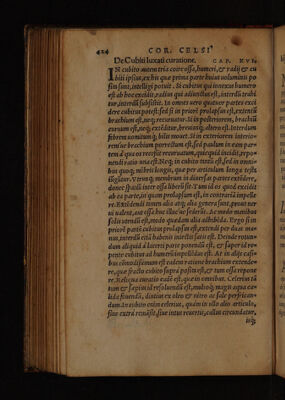 424 COR. CELSI
De Cubiti luxati curatione. CAP. XVI.
IN cubito autem tria coire ossa, humeri, & radij & cu
biti ipsius, ex his quæ prima parte huius voluminis po
sita sunt, intelligi potuit. Si cubitus qui innexus humero
est ab hoc excidit, radius qui adiunctus est, interdū trahi
tur, interdū subsistit. In omnes vero quatuor partes exci
dere cubitus potest: sed si in priorē prolapsus est, extentū
brachium est, neq; recuruatur. Si in posteriorem, brachiū
curuum est, neq; extēditur, breuiusq; altero est. Interdum
febrem uomitumq; bilis mouet. Si in exteriorem interio-
remue brachium porrectum est, sed paulum in eam par-
tem à qua os recessit recuruatum, quicquid incidit, repo-
nendi ratio una est. Neq; in cubito tantū est, sed in omni
bus quoq; mēbris longis, quæ per articulum longa testa
iunguntur. Utrunq; membrum in diuersas partes extēdere,
donec spatiū inter ossa liberū sit: Tum id os quod excidit
ab ea parte, in quam prolapsum est, in contrariā impelle
re. Extēdendi tamen alia atq; alia genera sunt, prout ner
ui ualent, aut ossa huc illuc ue se dederūt. Ac modo manibus
solis utendū est, modo quædam alia adhibēda. Ergo si in
priorē partē cubitus prolapsus est, extendi per duas ma-
nus, interdū etiā habenis iniectis satis est. Deinde rotun-
dum aliquid à lacerti parte ponendū est, & super id re-
pente cubitus ad humerū impellēdus est. At in alijs casi-
bus cōmodissimum est eadem ratione brachium extende-
re, quæ fracto cubito supra posita est, & tum ossa repone
re. Reliqua curatio eadē est, quæ in omnibus. Celerius tā
tum & sæpius id resoluendū est, multoq; magis aqua ca-
lida fouendū, diutius ex oleo & nitro ac sale perfrican-
dum. In cubito enim celerius, quàm in ullo alio articulo,
siue extra remāsit, siue intus reuertit, callus circundatur,
isq;